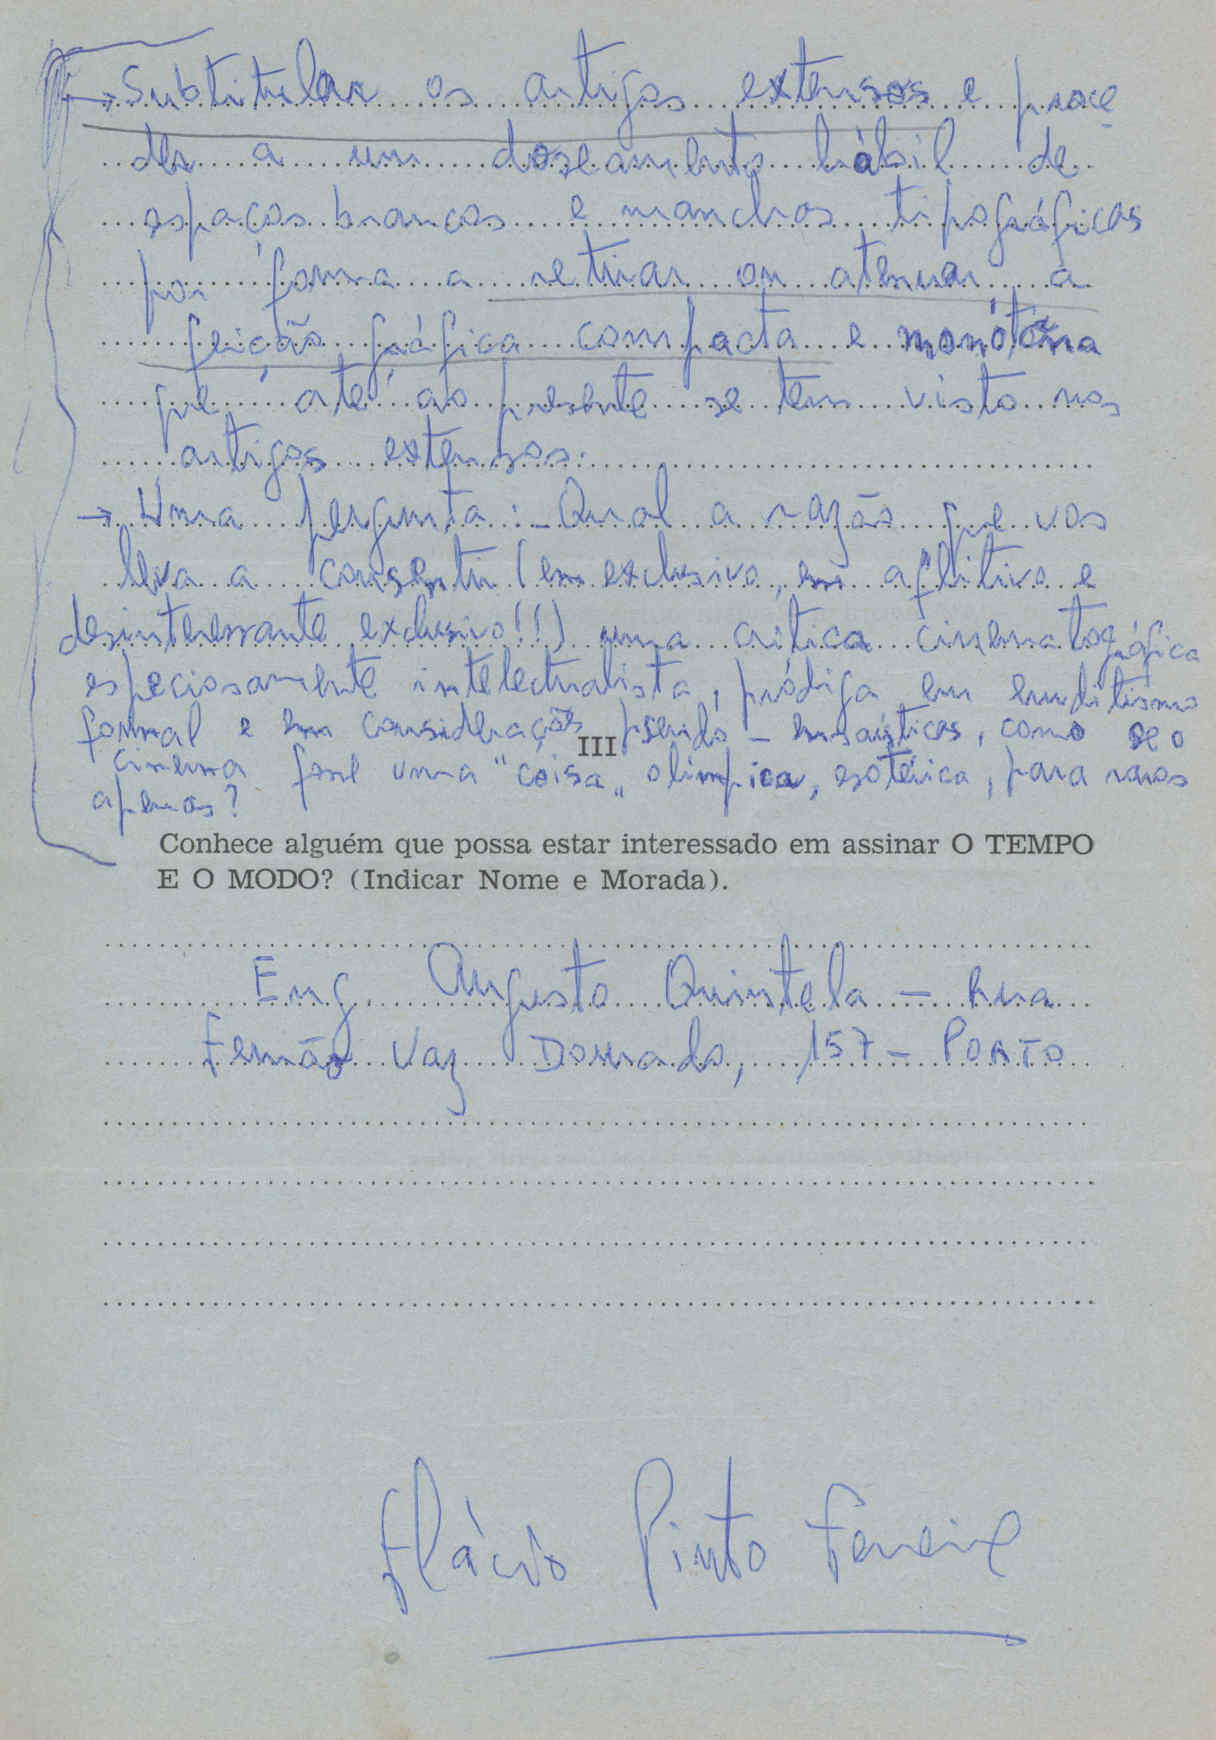 → Subtitular os artigos extensos e proce
der a um doseamento hábil de
espaços brancos e manchas tipográficas
por forma a retirar ou atenuar a
feição gráfica compacta e monótona
que, até ao presente se tem visto nos
artigos extensos.
→ Uma pergunta: - Qual a razão que vos
leva a consentir (em exclusivo, em aflitivo e
desinteressante exclusivo!!) uma crítica cinematográfica
especiosamente intelectualista, pródiga em eruditismo
formal e em considerações pseudo - , como se o
III
cinema fosse uma "coisa" olímpica, esotérica, para raros
apenas?
Conhece alguém que possa estar interessado em assinar O TEMPO
E O MODO? (Indicar Nome e Morada).
Eng. Augusto Quintela - Rua
Fernão Vaz Dourado, 157 - PORTO
Flávio Pinto Ferreira